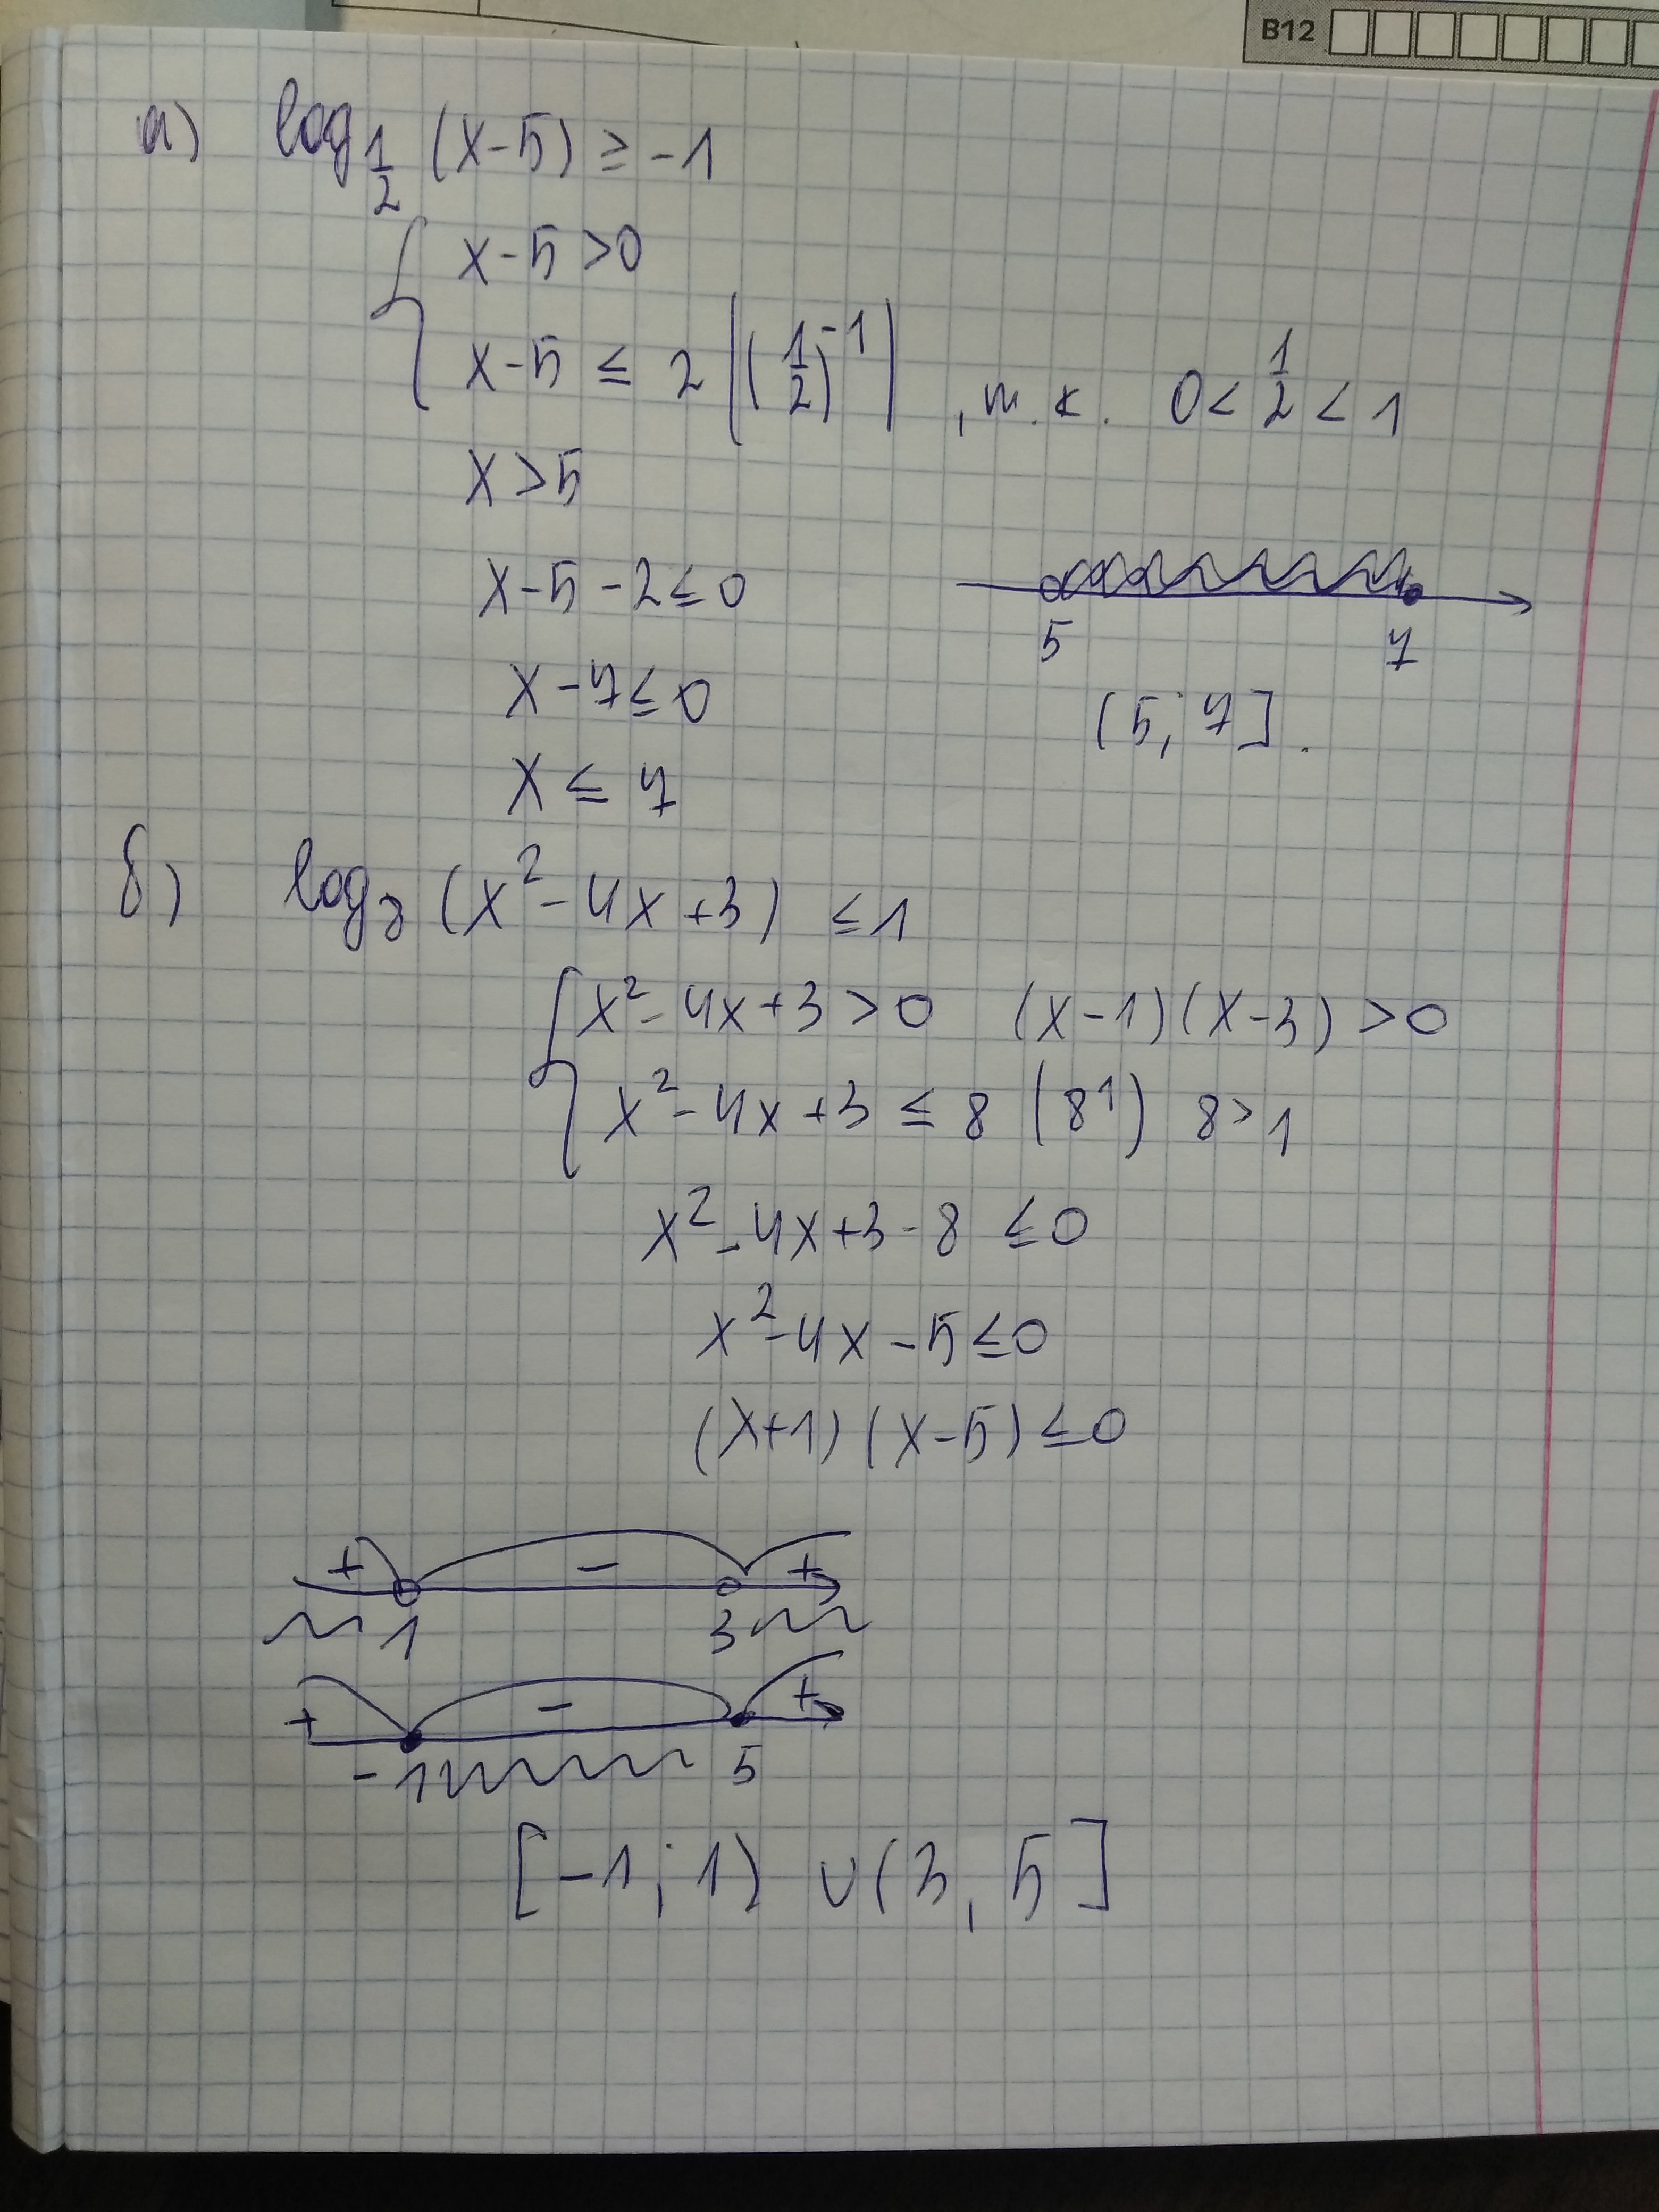 B12
а) log 1/2 (x-5) ≥ -1
x-5 >0
x-5 ≤ 2 |(1/2)^-1| , т.к. 0< 1/2 < 1
x >5
x-5-2≤0
5 7
x-7≤0
(5; 7].
x ≤ 7
б) log₈ (x²-4x+3) ≤1
x²-4x+3 >0 (x-1)(x-3) >0
x²-4x+3 ≤ 8 (8¹) 8>1
x²-4x+3-8 ≤0
x²-4x-5≤0
(x+1)(x-5)≤0
+ - +
1 3
+ - +
-1 5
[-1; 1) ∪(3, 5]